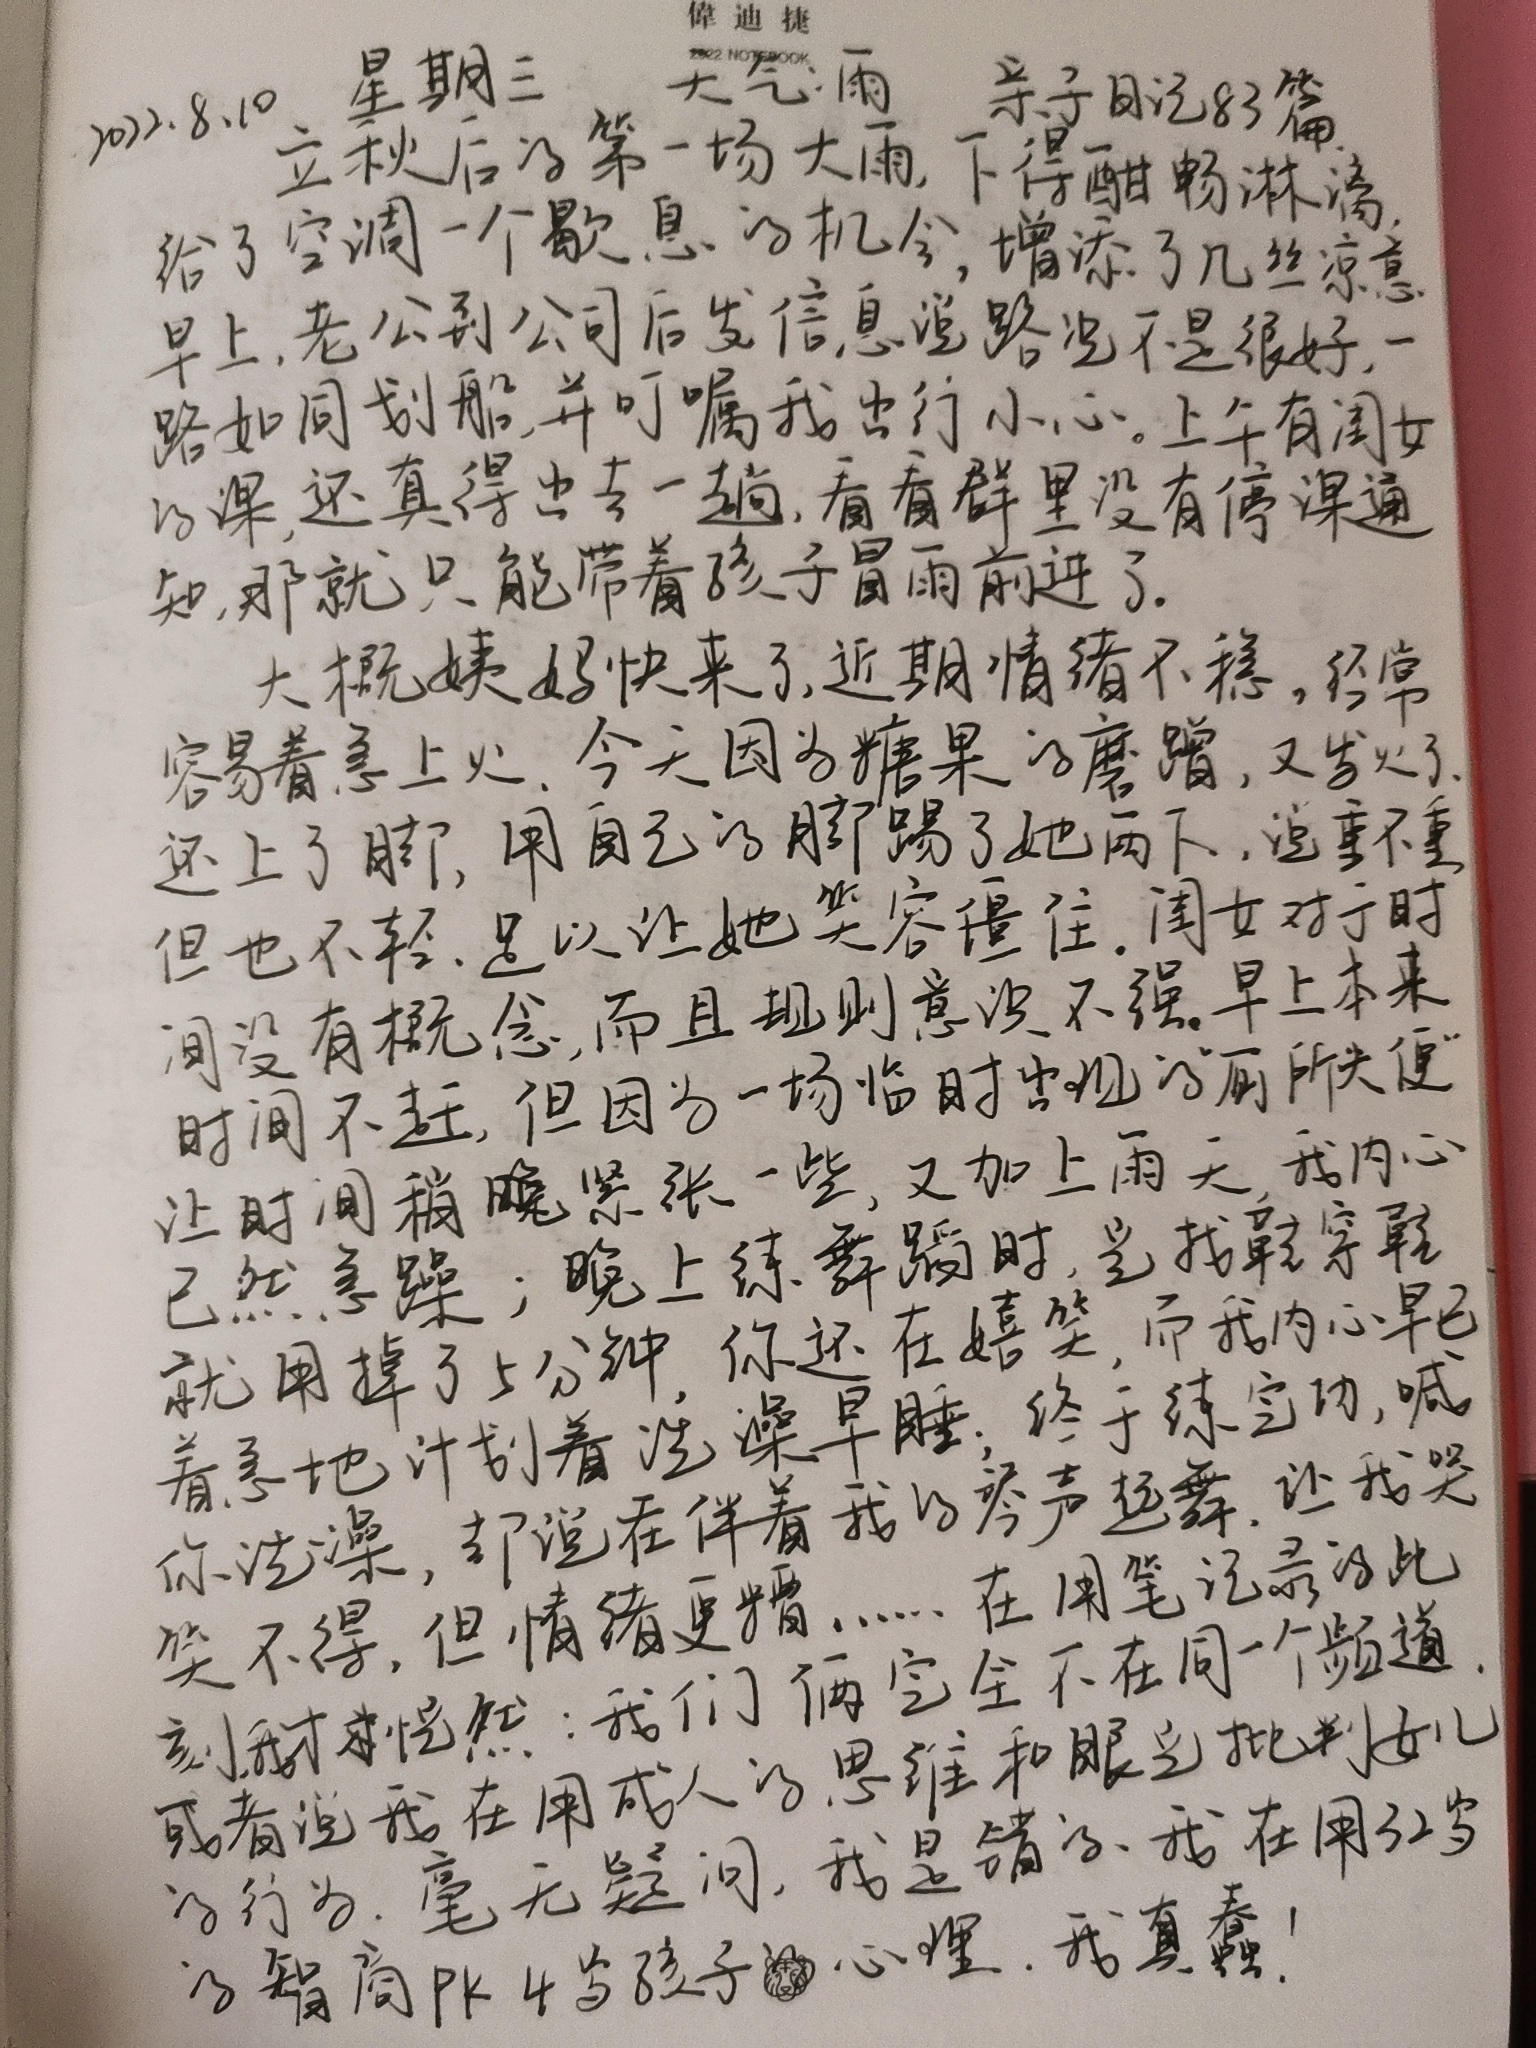 偉迪捷
2022 NOTEBOOK
2022.8.10 星期三 天气:雨 亲子日记83篇
立秋后的第一场大雨,下得酣畅淋漓,
给了空调一个歇息的机会,增添了几丝凉意
早上,老公到公司后发信息说路况不是很好,一
路如同划船,并叮嘱我出行小心。上午有闺女
的课,还真得出去一趟,看看群里没有停课通
知,那就只能带着孩子冒雨前进了.
大概姨妈快来了,近期情绪不稳,经常
容易着急上火、今天因为糖果的磨蹭,又发火了、
还上了脚,用自己的脚踢了她两下,说重不重
但也不轻、足以让她笑容僵住.闺女对于时
间没有概念,而且规则意识不强。早上本来
时间不赶,但因为一场临时出现的"厕所大便"
让时间稍晚紧张一些,又加上雨天,我内心
已然急躁;晚上练舞蹈时,光找鞋穿鞋
就用掉了5分钟,你还在嬉笑,而我内心早已
着急地计划着洗澡早睡;终于练完功,喊
你洗澡,却说在伴着我的琴声起舞.让我哭
笑不得,但情绪更糟......在用笔记录的此
刻,我才恍然:我们俩完全不在同一个频道.
或者说我在用成人的思维和眼光批判女儿
的行为.毫无疑问,我是错的、我在用32岁
的智商PK4岁孩子心理.我真蠢!